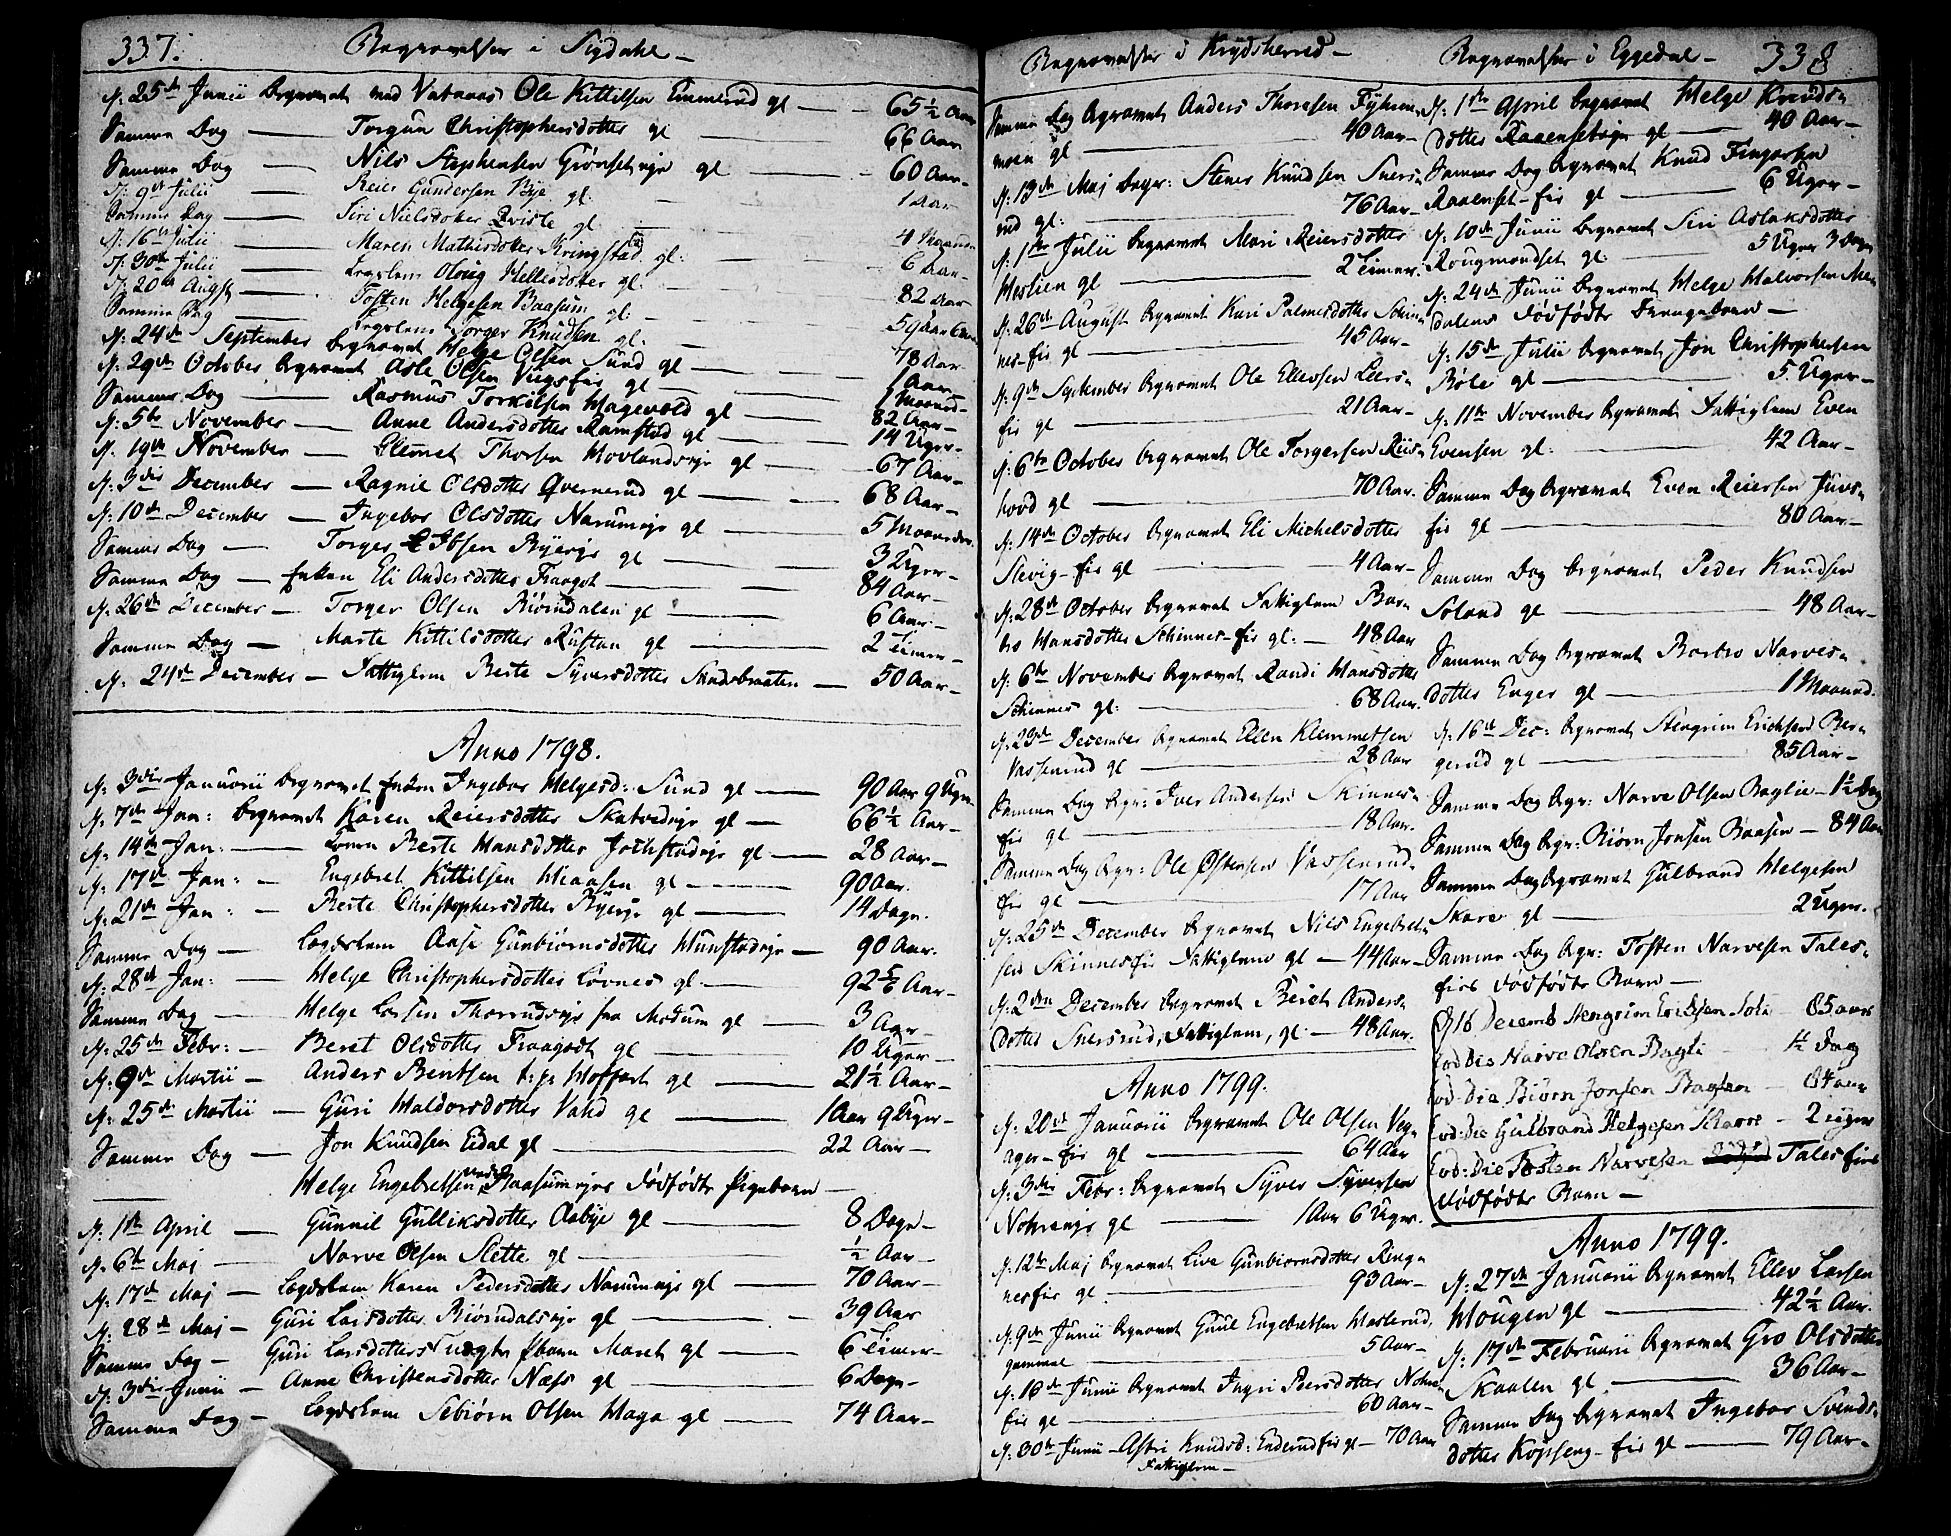 337.
Begravelser i Sigdahl –
d: 25de Junii begravet ved Vatnaas Ole Kittilsen Emmerud gl — 65½ Aar
Samme Dag — Torgun Christophersdotter gl — 66 Aar
Samme Dag — Nils Stephensen Grønset gl — 60 Aar
d: 9de Julii — Reier Gundersen Bye gl: — 1 Aar
Samme Dag — Siri Nielsdotter Qvisle gl —
d: 16de Julii — Maren Mathisdotter Kringstad gl: — 4
d: 30te Julii — Legslem Oloug Hellesdotter gl: — 6 Aar
d: 20de Augst — Tosten Helgesen Baasum gl: — 82 Aar
Samme Dag — Legslem Torger Knudsen gl:
d: 24de September begravet Helge Olsen Sund gl — 78 Aar
d: 29de October begravet Asle Olsen gl — 1 Aar
Samme Dag — Rasmus Torkilsen Hagevold gl — 1 Maaned
d: 5te November — Anne Andersdotter Ramstad gl — 82 Aar
d: 19de November — Clemet Thorsen gl — 14 Uger
d: 3die December — Ragnil Olsdotter Qvernerud gl — 67 Aar
d: 10de December — Ingebor Olsdotter gl — 68 Aar
Samme Dag — Torger Ibsen gl — 5 Maaneder
Samme Dag — Enken Eli Andersdotter Fraagot — 3 Uger
d: 26de December — Torger Olsen Biørndalen gl — 84 Aar
Samme Dag — Marte Kittilsdotter Rustan gl — 6 Aar
2 Timer
d: 24de December – Fattiglem Berte Syversdotter Skadsbraaten — 50 Aar
Anno 1798.
d: 3die Januarii begravet Enken Ingebor Helgesd: Sund gl — 90 Aar 9 Uger
d: 7de Jan: begravet Karen Reiersdotter gl — 66½ Aar
d: 14de Jan: — Konen Berte Hansdotter gl — 28 Aar
d: 17de Jan: — Engebret Kittilsen Hiaasen gl — 90 Aar.
d: 21de Jan: — Berte Christophersdotter gl — 14 Dage.
Samme Dag — Legdslem Aase Gunbiørnsdotter — 90 Aar.
d: 28de Jan: — Helge Christophersdotter Lovnes gl. — 92 5/6 Aar
Samme Dag — Helge Larsen fra Modum gl — 3 Aar
d: 25de Febr: — Beret Olsdotter Fraagodt gl — 10 Uger
d: 9de Martii — Anders Bentsen gl — 21½ Aar
d: 25de Martii — Guri Haldorsdotter Vahd gl — 1 Aar 9 Uger
Samme Dag — Jon Knudsen Eidal gl — 22 Aar
— Helge Engebretsen Dødfødte Pigebarn —
d: 1ste April — Gunnil Gulliksdotter Aabye gl — 8 Dage
d: 6te Maj — Narve Olsen Slette gl — ½ Aar
d: 17de Maj — Legdslem Karen Pedersdotter gl — 70 Aar
d: 28de Maj – Guri Larsdotter gl — 39 Aar
Samme Dag – Guri Larsdotters Maret gl — 6 Timer
d: 3die Junii – Anne Christensdotter Næss gl — 6 Dage
Samme Dag – Legdslem Sebiørn Olsen Haga gl — 74 Aar
Begravelser i Krydsherred –
Samme Dag begravet Anders Thoresen
moen gl — 40 Aar
d: 13de Maj begr: Stener Knudsen Sners-
rud gl: — 76 Aar
d: 1ste Julii begravet Mari Reiersdotter
Heslien gl — 2 Timer
d: 26de August begravet Kari Palmesdotter Schin-
nes-Eie gl — 45 Aar
d: 9de September begravet Ole Ellevsen Leers-
Eie gl — 21 Aar
d: 6te October begravet Ole Torgersen Riis-
hovd gl — 70 Aar.
d: 14de October begravet Eli Michelsdotter
Slevig-Eie gl — 4 Aar
d: 28de October begravet Fattiglem Bar-
bro Hansdotter Schinnes-Eie gl: — 48 Aar
d: 6te November begravet Randi Hansdotter
Schinnes gl: — 68 Aar.
d: 23de December begravet Ellen Klemmetsen
Vassenrud gl — 28 Aar
Samme Dag begr: Iver Andersen Skinnes-
Eie gl — 18 Aar.
Samme Dag begr: Ole Østensen Vassenrud-
Eie gl — 17 Aar
d: 25de December begravet Nils Engebret-
sen Skinneseie Fattiglem gl — 44 Aar
d: 2den December begravet Berit Anders-
dotter Snersrud, Fattiglem, gl: — 48 Aar.
Anno 1799.
d: 20de Januarii begravet Ole Olsen Veg-
ager-Eie gl — 64 Aar
d: 3die Febr: begravet Syver Syversen
gl — 1 Aar 6 Uger.
d: 12te Maj begravet Live Gunbiørnsdotter Ring-
neseie gl — 93 Aar
d: 9de Junii begravet Guul Engebretsen Haslerud,
gammel — 5 Aar
d: 16de Junii begravet Ingri Peersdotter
Eie gl — 60 Aar
d: 30te Junii – Astri Knudsd: Enderudeie gl – 70 Aar
Fattiglem –
Begravelser i Eggedal – 338
d: 1ste April begravet Helge Knuds-
dotter gl — 40 Aar
Samme Dag begravet Knud Fingarsen
Raaenset-Eie gl — 6 Uger
d: 10de Junii begravet Siri Aslaksdotter
gl: — 5 Uger 3 Dage
d: 24de Junii begravet Helge Halvorsen Me-
dalens Dødfødte Drengebarn —
d: 15de Julii begravet Jon Christophersen
gl — 5 Uger
d: 11te November begravet Fattiglem Even
Evensen gl: — 42 Aar
Samme Dag begravet Even Reiersen Juvs-
Eie gl — 80 Aar
Samme Dag begravet Peder Knudsen
Soland gl — 48 Aar
Samme Dag begravet Barbro Narves-
dotter Enger gl — 1 Maaned.
d: 16de Dec: begravet Stengrim Erichsen Ber-
gerud gl — 85 Aar
Samme Dag begr: Narve Olsen Baglie – 1½ Dag
Samme Dag begr: Biørn Jonsen Baasen — 84 Aar
Samme Dag begravet Gulbrand Helgesen
Skare gl — 2 Uger.
Samme Dag begr: Tosten Narvesen Tales-
Eies Dødfødte Barn —
d 16 Decemb Stengrim Erichsen – 85 aar
eod: Die Narve Olsen Bagli – ½ Dag
eod: Die Biørn Jonsen – 84 aar
eod: Die Gulbrand Helgesen Skare – 2 uger
eod: Die Tosten Narvesen Tales Eies
Dødfødte Barn —
Anno 1799.
d: 27de Januarii begravet Ellev Larsen
Hougen gl — 42½ Aar.
d: 17de Februarii begravet Gro Olsdotter
Skaalen gl — 36 Aar
Samme Dag begravet Ingebor Svends-
dotter Kopseng-Eie gl — 79 Aar